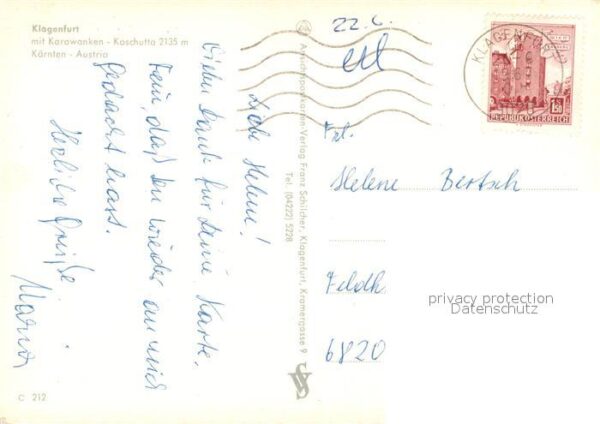 Klagenfurt
mit Karawanken - Koschutta 2135 m
Kärnten - Austria
Liebe Helene!
Vielen Dank für Deine Karte.
Fein, daß Du wieder an mich
gedacht hast.
Herzliche Grüße
Maria
C 212
Ansichtspostkarten-Verlag Franz Schilcher, Klagenfurt, Kramergasse 9
Tel. (04222) 5228
22.6.
KLAGENFURT
1.50
REPUBLIK ÖSTERREICH
Frl.
Helene Bertsch
Feldk
6820
privacy protection
Datenschutz